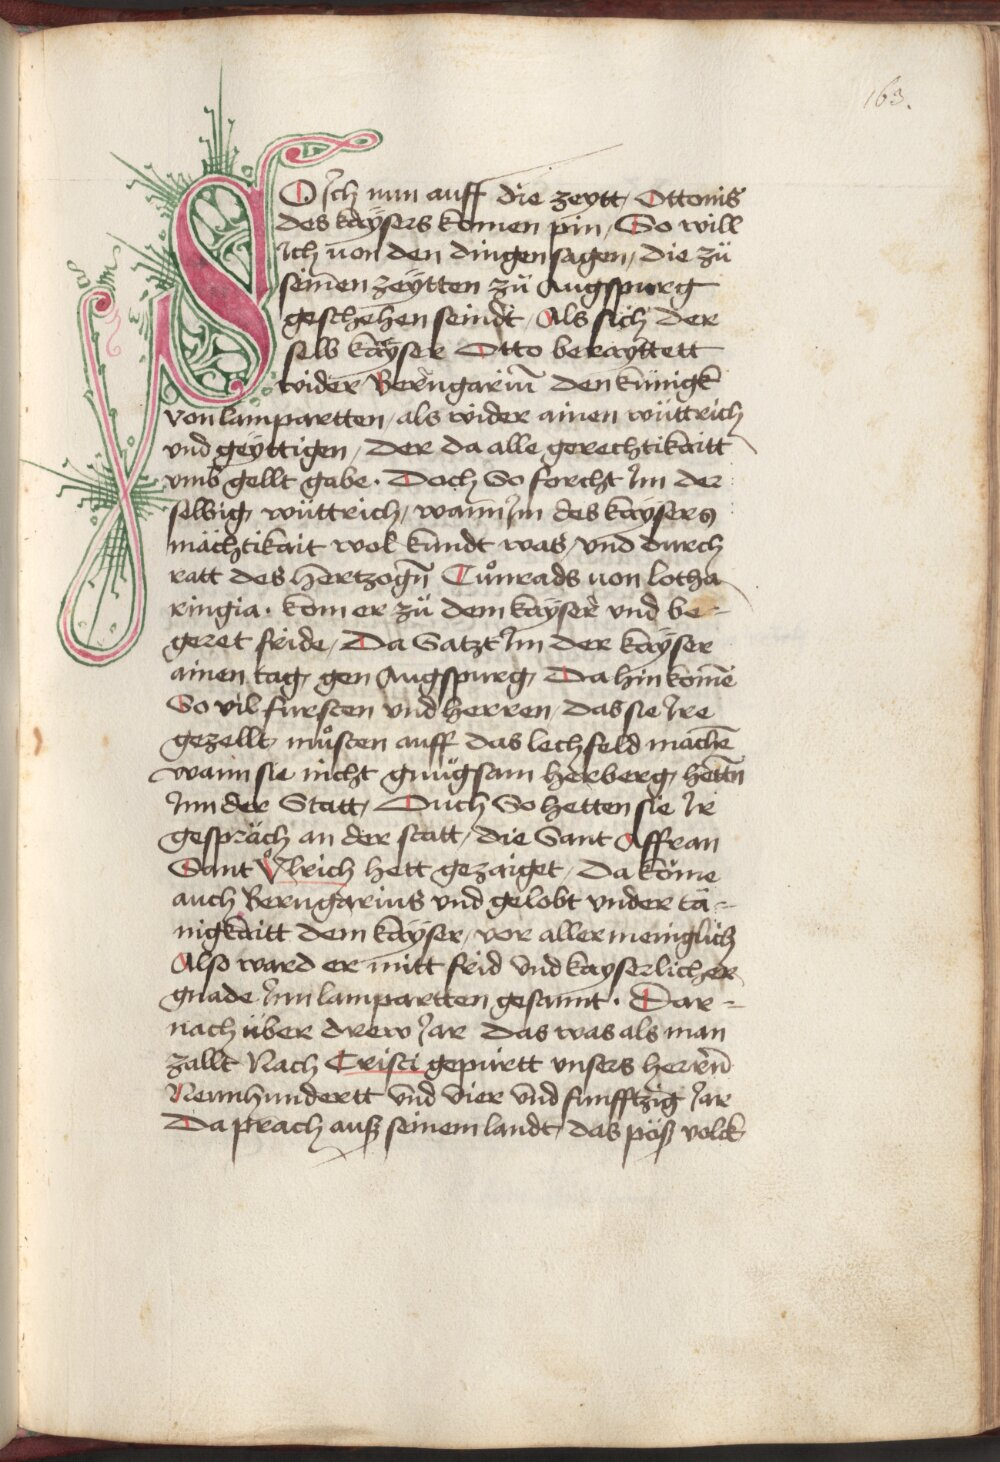 163.
SO Jch nun auff die zeytt, Ottonis
des kaÿsers komen pin, So will
Ich von den dingen sagen, die zü
seinen zeÿtten zü Augspurg
geschehen seindt, Als sich der
selb kaÿser Otto beraÿttett
wider Berngariū den künigk
von lampartten, als wider ainen wüttrich
vnd geÿttigen, Der da alle gerechtikaitt
vmb gellt gabe. Doch So forcht Jm der
selbig, wüttrich, wann Jm des kaÿsers
mächtikait wol kundt was, vnd durch
ratt des hertzogn̄ Cůnrads von lotha
ringia. kom er zü dem kaÿser vnd be-
geret fride, Da Satzt Jm der kaÿser
ainen tag, gen Augspurg, Da hin komē
So vil fursten vnd herren, das sie Jre
gezellt, můsten auff das lechfeld machē
wann sie nicht gnügsam herberg, hettn̄
Jnn der Statt, Ouch So hetten sie Jr
gespräch an der statt, die Sant Affran
Sant Vͦlrich hett gezaiget, Daköme
auch Berngarius vnd gelobt vnder tä-
nigkaitt dem kaÿser, vor aller meniglich
Also ward er mitt frid vnd kayserlicher
gnade Jnn lampartten gesannt. Dar-
nach über drew Jar das was als man
zallt Nach Cristi gepürtt vnsers herrn̄
Neunhundertt vnd vier vnd funfftzig Jar
Da prach auß seinem landt, das pöß volck